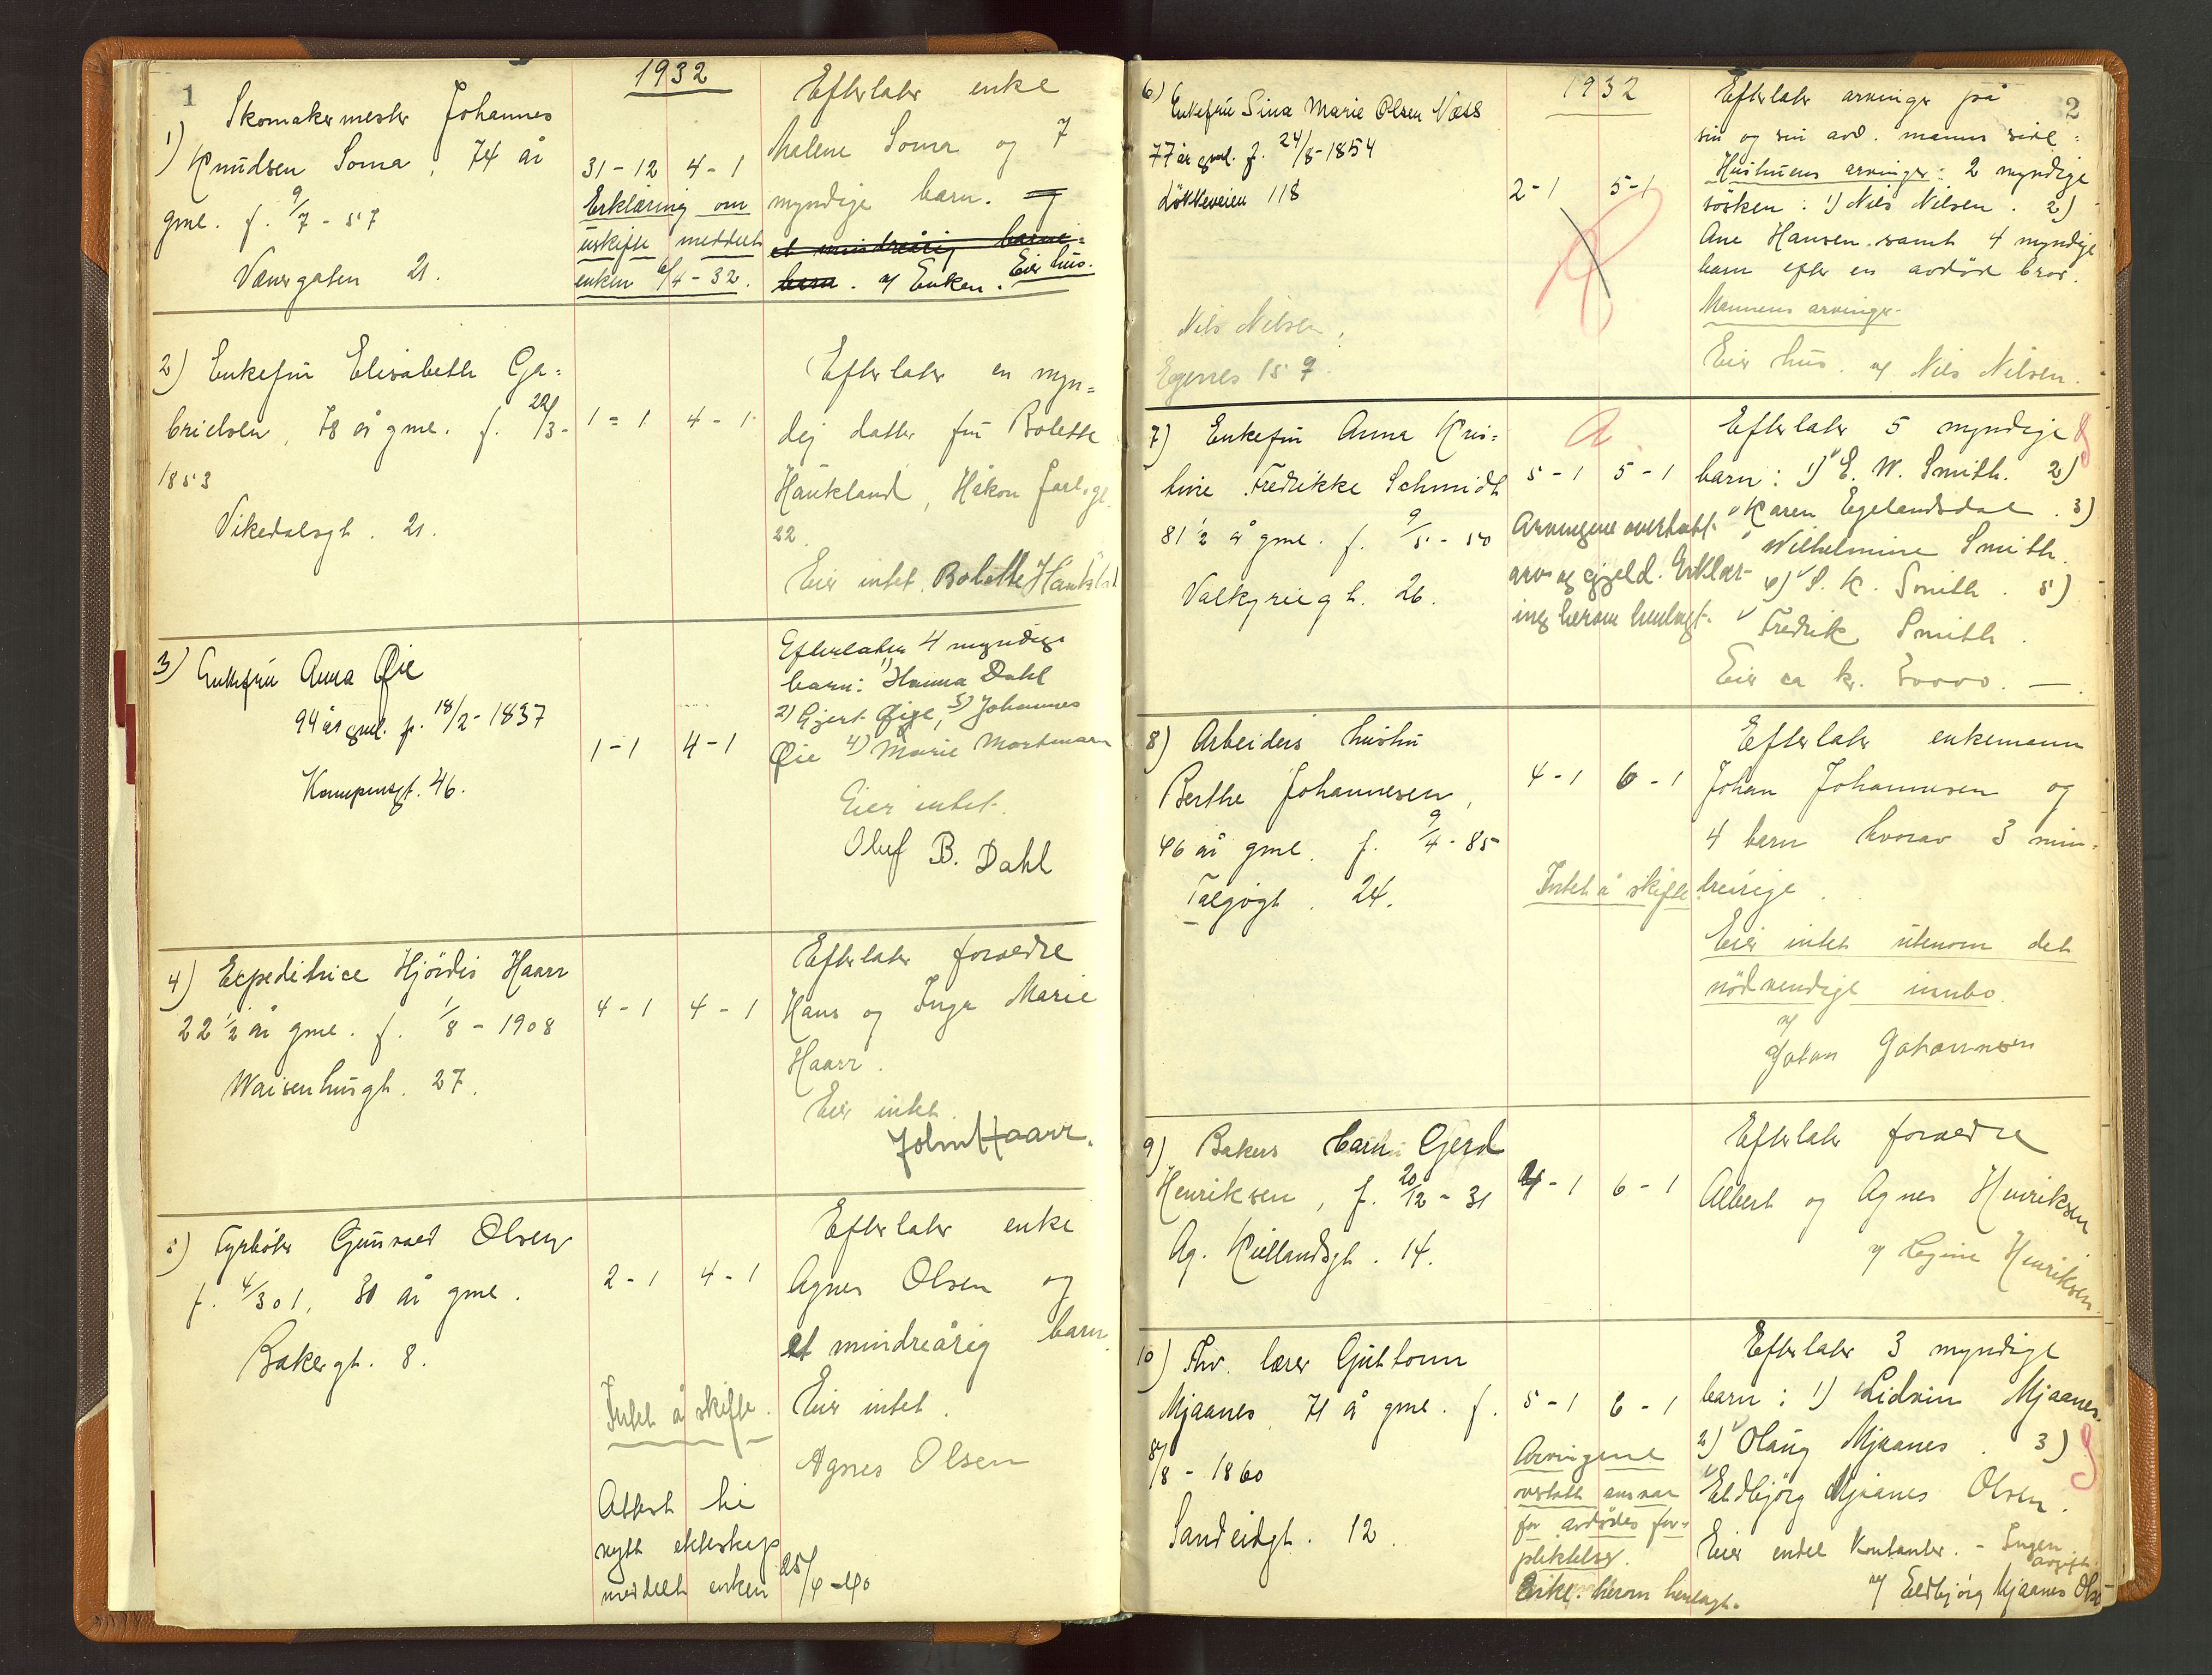 1
1932
1) Skomakermester Johannes
Knudsen Soma, 74 år
gml. f. 9/7 - 57
Vænergaten 21.
31-12 4-1
Erklæring om
uskifte meddelt
enken 6/4-32.
Efterlater enke
Malene Soma og 7
myndige barn. og
et mindreårig barne-
barn. af Enken. Eier hus.
2) Enkefru Elisabeth Ga-
brielsen, 78 år gml. f. 29/3-
1853
Vikedalsgt. 21.
1-1 4-1
Efterlater en myn-
dig datter fru Bolette
Haukland, Håkon Jarlsgt.
22.
Eier intet. Bolette Haukland
3) Enkefru Anna Øie
94 år gml. f. 18/2-1837
Kampensgt. 46.
1-1 4-1
Efterlater 4 myndige
barn: 1) Hanna Dahl
2) Gjert Øige, 3) Johannes
Øie 4) Marie Mortensen
Eier intet.
Oluf B. Dahl
4) Expeditrice Hjördis Haarr
22 1/2 år gml. f. 1/8 - 1908
Waisenhusgt. 27.
4-1 4-1
Efterlater forældre
Hans og Inga Marie
Haarr.
Eier intet.
John Haarr.
5) Fyrbøter Gunvald Olsen
f. 4/3 01, 30 år gml.
Bakergt. 8.
2-1 4-1
Intet å skifte.
Attest til
nytt ekteskap
meddelt enken 25/4-40
Efterlater enke
Agnes Olsen og
et mindreårig barn.
Eier intet.
Agnes Olsen
2
1932
6) Enkefru Sina Marie Olsen Næss
77 år gml. f. 24/8-1854
Løkkeveien 118
Nils Nilsen,
Egenes 157.
2-1 5-1
Efterlater arvinger på
sin og sin avd. manns side:
Hustruens arvinger: 2 myndige
søsken: 1) Nils Nilsen. 2)
Ane Hansen. samt 4 myndige
barn efter en avdød bror.
Mannens arvinger.
Eier hus. af Nils Nilsen.
7) Enkefru Anna Kris-
tine Fredrikke Schmidt
81 1/2 år gml. f. 9/5 - 50
Valkyriegt. 26.
5-1 5-1
Arvingene overtatt
arv og gjeld. Erklær-
ing herom henlagt.
Efterlater 5 myndige
barn: 1) E. W. Smith. 2)
Karen Egelandsdal. 3)
Wilhelmine Smith.
4) S. K. Smith. 5)
Fredrik Smith.
Eier ca kr. 30000. —.
8) Arbeiders hustru
Berthe Johannesen,
46 år gml. f. 9/4 - 85
Talgøgt. 24.
4-1 6-1
Intet å skifte
Efterlater enkemann
Johan Johannesen og
4 barn hvorav 3 min-
dreårige.
Eier intet utenom det
nödvendige innbo.
af
Johan Johannesen
9) Bakers barn Gerd
Henriksen, f. 20/12 - 31
Ag. Kiellandsgt. 14.
4-1 6-1
Efterlater forældre
Albert og Agnes Henriksen
af Regine Henriksen.
10) Fhv. lærer Guttorm
Mjaanes, 71 år gml. f.
8/8 - 1860
Sandeidgt. 12.
5-1 6-1
Arvingene
overtatt ansvar
for avdødes for-
pliktelser.
Erkl. herom henlagt.
Efterlater 3 myndige
barn: 1) Lidvin Mjaanes.
2) Olaug Mjaanes. 3)
Eldbjörg Mjaanes Olsen.
Eier endel Kontanter. - Ingen
avgift.
af Eldbjörg Mjaanes Olsen